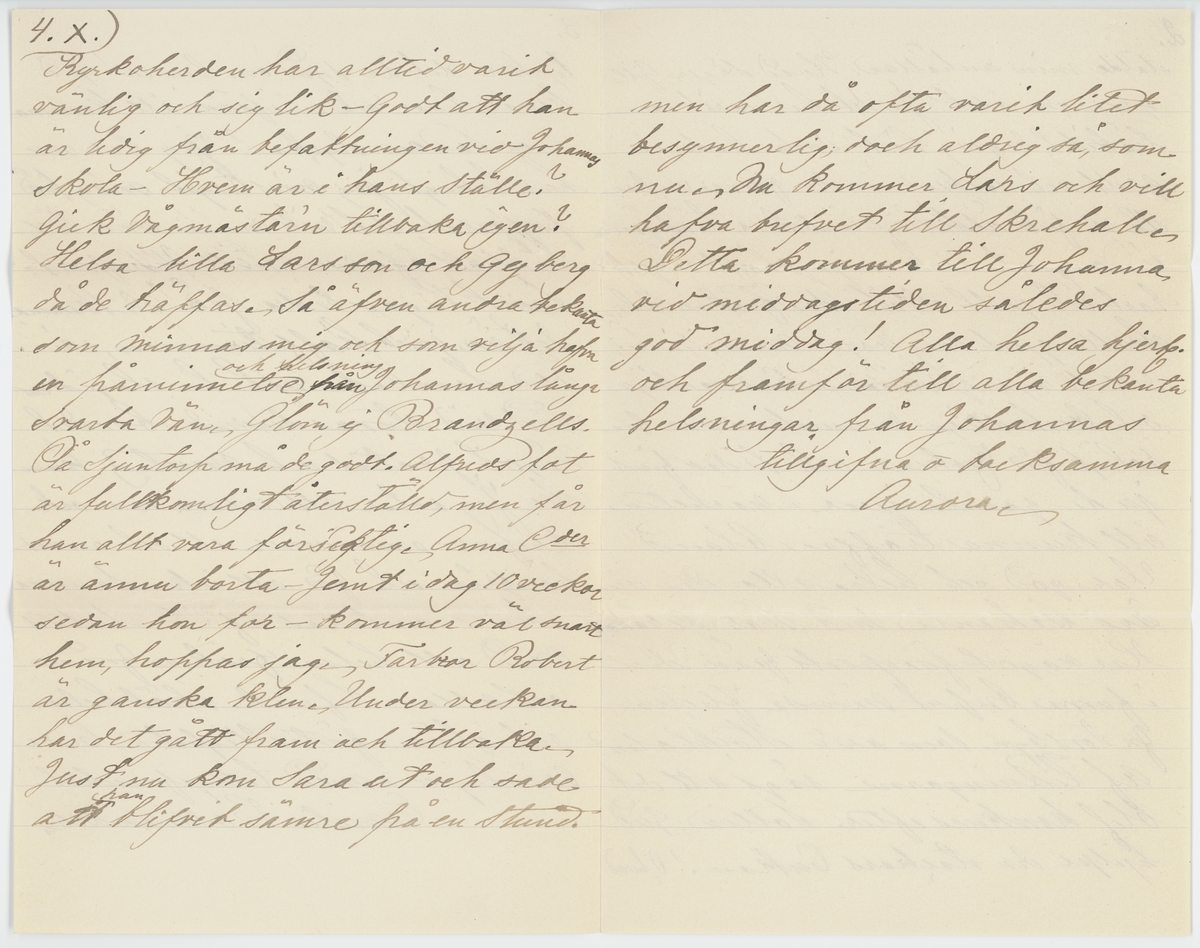 4. X.)
Kyrkoherden har alltid varit
vänlig och sig lik – Godt att han
är ledig från befattningen vid Johannes
skola – Hvem är i hans ställe?
Gick Vågmästar'n tillbaka igen?
Helsa lilla Larsson och Gejberg
då de träffas. Så äfven andra bekanta
som minnas mig och som vilja hafva
en påminnelse och helsning från Johannas långa
svarta Vän. Glöm ej Brandzells.
På Sjuntorp må de godt. Alfreds fot
är fullkomligt återställd, men får
han allt vara försigtig. Anna
är ännu borta – Jemt i dag 10 veckor
sedan hon for – kommer väl snart
hem, hoppas jag. Farbror Robert
är ganska klen. Under veckan
har det gått fram och tillbaka.
Just nu kom Sara ut och sade
att han blifvit sämre på en stund.
men har då ofta varit litet
besynnerlig; doch aldrig så, som
nu. Nu kommer Lars och vill
hafva brefvet till Skrehall.
Detta kommer till Johanna
vid middagstiden således
god middag! Alla helsa hjertl.
och framför till alla bekanta
helsningar från Johannas
tillgifna o tacksamma
Aurora.